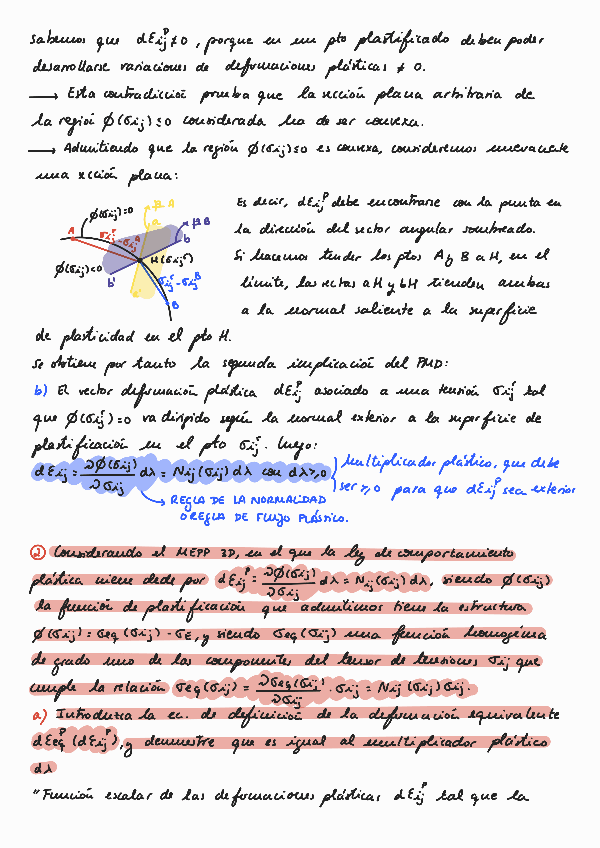 Sabemos que dεijᵖ ≠ 0, porque en un pto plastificado deben poder
desarrollarse variaciones de deformaciones plásticas ≠ 0.
→ Esta contradicción prueba que la sección plana arbitraria de
la región ϕ(σij) ≤ 0 considerada ha de ser convexa.
→ Admitiendo que la región ϕ(σij) ≤ 0 es convexa, consideremos nuevamente
una sección plana:
ϕ(σij)=0
A
a
b
B
ϕ(σij)<0
b'
a'
Es decir, dεijᵖ debe encontrarse con la punta en
la dirección del sector angular sombreado.
Si hacemos tender los ptos A y B a H, en el
límite, las rectas aH y bH tienden ambas
a la normal saliente a la superficie
de plasticidad en el pto H.
Se obtiene por tanto la segunda implicación del PMD:
b) El vector deformación plástica dεijᵖ asociado a una tensión σijʳ tal
que ϕ(σijʳ)=0 va dirigido según la normal exterior a la superficie de
plastificación en el pto σijʳ. Luego:
dεij = ∂ϕ(σij)/∂σij dλ = Nij(σij) dλ con dλ ≥ 0
multiplicador plástico, que debe
ser ≥ 0 para que dεijᵖ sea exterior
→ REGLA DE LA NORMALIDAD
O REGLA DE FLUJO PLÁSTICO.
2 Considerando el MEPP 3D, en el que la ley de comportamiento
plástica viene dada por dεijᵖ = ∂ϕ(σij)/∂σij dλ = Nij(σij) dλ, siendo ϕ(σij)
la función de plastificación que admitimos tiene la estructura
ϕ(σij) = σeq(σij) - σE, y siendo σeq(σij) una función homogénea
de grado uno de las componentes del tensor de tensiones σij que
cumple la relación σeq(σij) = ∂σeq(σij)/∂σij · σij = Nij(σij) σij.
a) Introduzca la ec. de definición de la deformación equivalente
dεeqᵖ(dεijᵖ), y demuestre que es igual al multiplicador plástico
dλ
"Función escalar de las deformaciones plásticas dεijᵖ tal que la